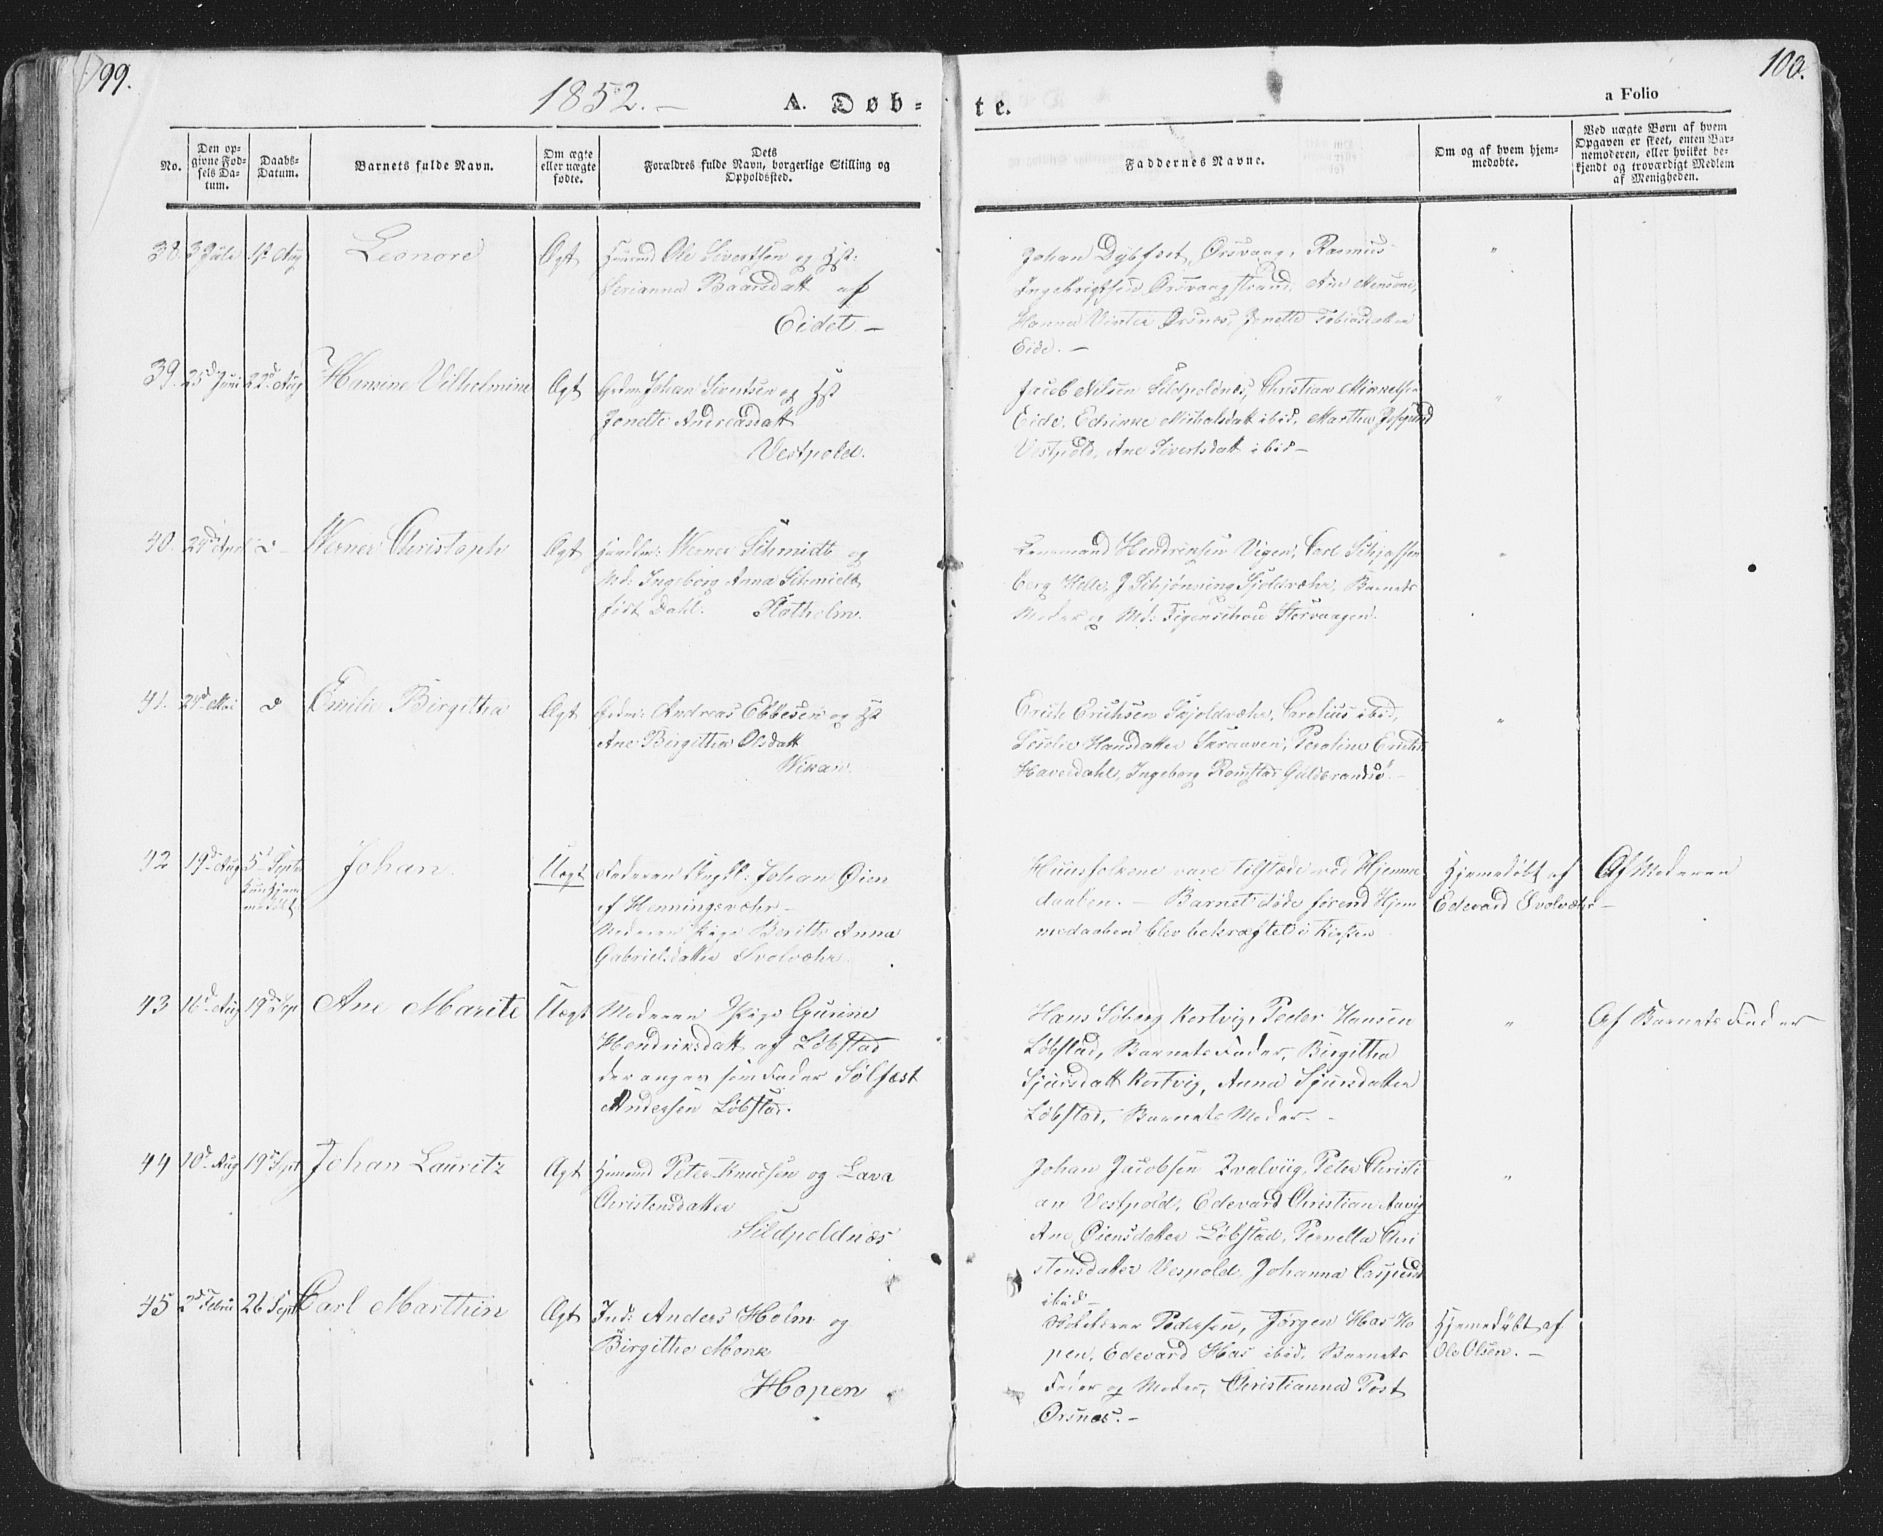 99.
1852.-
A. Døb-
te.
100.
a Folio
No.
Den opgivne Fødsels Datum.
Daabs-Datum.
Barnets fulde Navn.
Om ægte eller uægte fødte.
Dets Forældres fulde Navn, borgerlige Stilling og Opholdssted.
Faddernes Navne.
Om og af hvem hjemmedøbte.
Ved uægte Børn af hvem Opgaven er skeet, enten Barnemoderen, eller hvilket bekjendt og troværdigt Medlem af Menigheden.
38. Leonore Ægt Ole Sivertsen og Hst:
Serianna Baarsdatt af
Eidet -
Johan Dybfest, Ørsvaag, Rasmus
Ingebrigtsen Ørsvaagstrand,
Hanna Vinter Ørsnes, Jonette Tobiasdatter
Eide. -
39. 25d Juni 22d Aug Hanine Vilhelmine Ægt Johan Sivertsen og Hst
Jonette Andreasdatt
Vestpold.
Jacob Nilsen Sildpoldnes, Christian Mikkelsen
Eide, Nicholsdatt ibid, Martha
Vestpold, Ane Sivertsdatt ibid -
40. 24d April d - Werner Christoph Ægt Handlm: Werner Schmidt og
Md: Ingeborg Anna Schmidt
født Dahl. Flatholm.
Lensmand Hendriksen Vigen, Carl
Berg Helle, J Schjønning Skjoldvæhr, Barnets
Moder og Md: Figenschou Storvaagen.
41. 24d Mai d Emilie Birgitha Ægt Andreas Ebbesen og Hst
Ane Birgitha Olsdatt
Wikan.
Erich Erichsen Skjoldvæhr, Carolius ibid,
Hansdatter Skraaven, Peroline
Haversdahl, Ingeborg Romstad Guldbrandsø. -
42 19d Aug 5t Septr
kun hjemmedøbt
Johan. Uægt Faderen Ungkl. Johan Øien
af Henningsvæhr -
Moderen Pige Beritte Anna
Gabrielsdatter Svolvæhr.
Huusfolkene vare tilstæde ved Hjemme
daaben. - Barnet døde førend Hjem
medaaben blev bekræftet i Kirken
Hjemedøbt af
Edevard Svolvæhr -
Af Moderen
43 16d Aug 19d Sep Ane Marite Uægt Moderen Pige Gurine
Hendriksdatt af Løbstad
der angav som Fader Sølfæst
Andersen Løbstad.
Hans Søberg Kortvig, Peder Hansen
Løbstad, Barnets Fader, Birgitha
Sjursdatt Kortvig, Anna Sjursdatter
Løbstad, Barnets Moder. -
Af Barnets Fader
44 10d Aug 19d Sept Johan Lauritz Ægt Huusmd Peter Knudsen og Lava
Christensdatter
Sildpoldnæs
Johan Jacobsen Peter Christi
an Vestpold, Edevard Christian
Ane Øiensdatter Løbstad, Pernella Chri
stensdatter Vespold, Johanna
ibid -
45 2d Februar 26 Sept Carl Marthin Ægt Ind: Anders Holm og
Birgithe Monk
Hopen
Pedersen, Jørgen Has Ho
pen, Edevard Has ibid, Barnets
Fader og Moder, Christianna Post
Ørsnæs. -
Hjemedøbt af
Ole Olsen. -